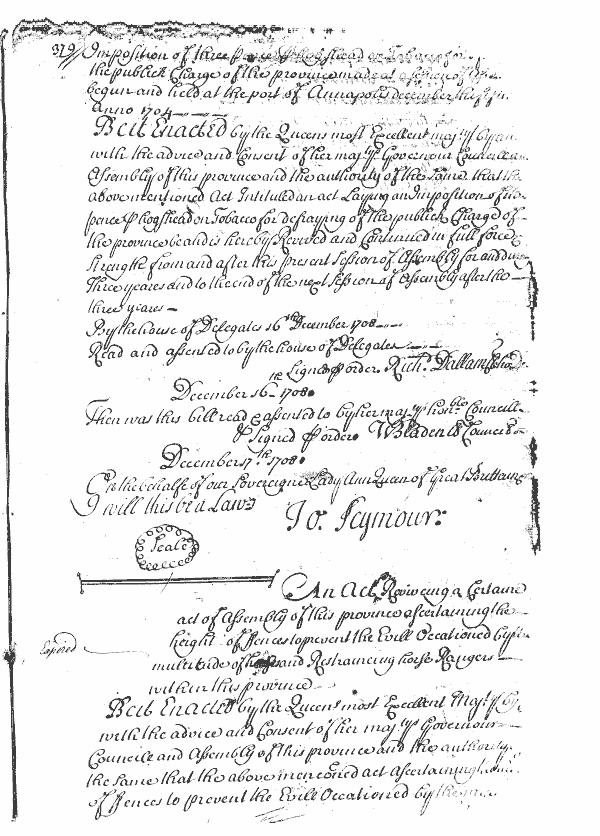 379 Imposition of three Pence ⅌ hogshead on Tobacco for
the publick Charge of the province made at a session of
begun and held at the port of Annapolis december the
Anno 1704
Be it Enacted by the Queens most Excellent maj:ty by an
with the advice and Consent of her maj:tys Governour Councill an
Assembly of this province and the authority of the same that the
abovementioned Act Intituled an act Laying an Imposition of
pence ⅌ hogshead on Tobacco for defraying of the publick Charge of
the province be and is hereby Revived and Continued in full force
strength from and after this present Session of Assembly for and
Three yeares and to the end of the next Session of Assembly after the
three yeares
By the house of Delegates 16th December 1708
Read and assented to by the house of Delegates
Signed ⅌ order. Richd. Dallam
December 16th 1708.
Then was this bill read & assented to by her maj:tys honble Councill
Signed ⅌ order. W Bladen Cl Council
December 17th 1708.
On the behalfe of our Sovereigne Lady Ann Queen of Great Brittaine
I will this be a Law
Jo. Seymour.
Seale
An Act Reviveing a Certaine
act of Assembly of this province ascertaining the
height of ffences to prevent the Evill Occationed by the
Expired
multitude of horses and Restraining horse Rangers
within this province
Be it Enacted by the Queens most Excellent Maj:ty by
with the advice and Consent of her maj:tys Governour
Councill and Assembly of this province and the authority
the same that the above mencened act ascertaining
of ffences to prevent the Evill Occationed by the